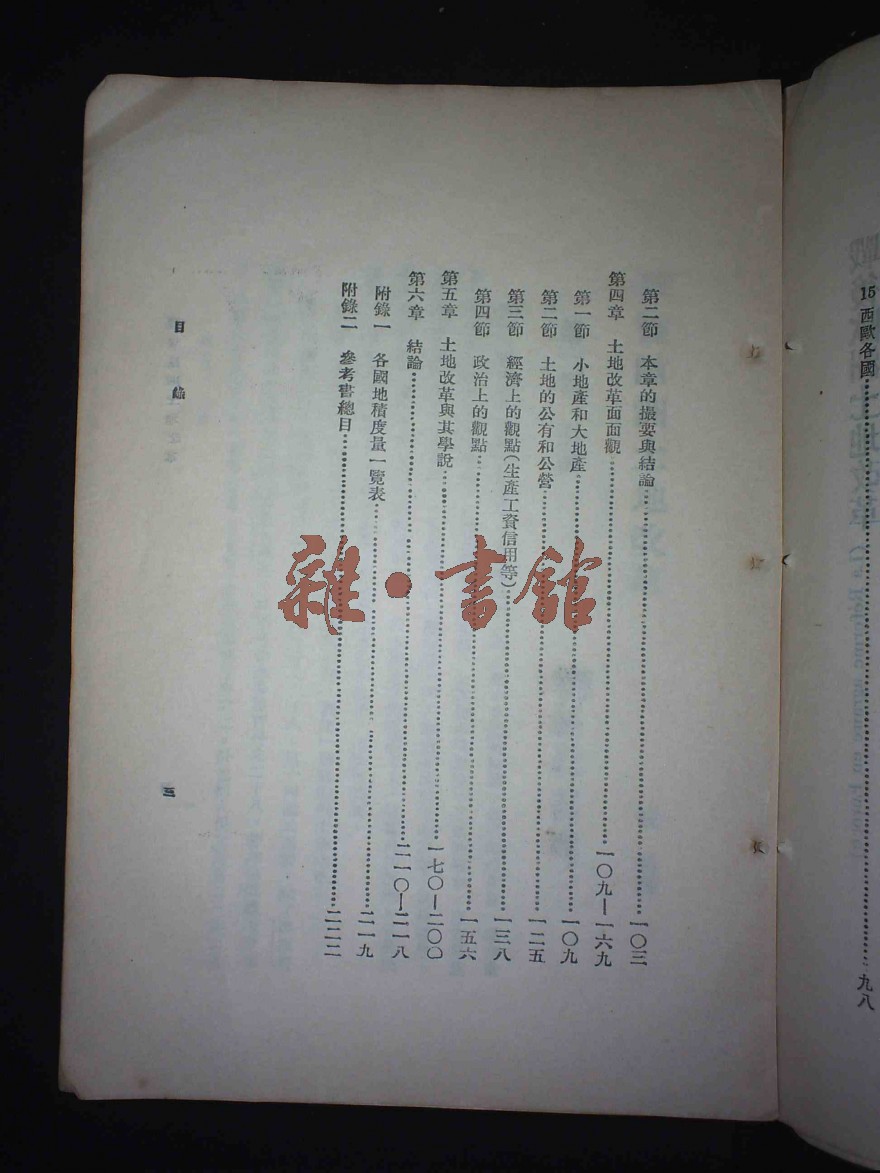 15 西歐各國……九八
第二節 本章的撮要與結論……一〇三
第四章 土地改革面面觀……一〇九—一六九
第一節 小地產和大地產……一〇九
第二節 土地的公有和公營……一二五
第三節 經濟上的觀點(生產工資信用等)……一三八
第四節 政治上的觀點……一五六
第五章 土地改革與其學說……一七〇—二〇〇
第六章 結論……二一〇—二一八
附錄一 各國地積度量一覽表……二一九
附錄二 參考書總目……二二二
目錄
三
雜·書館